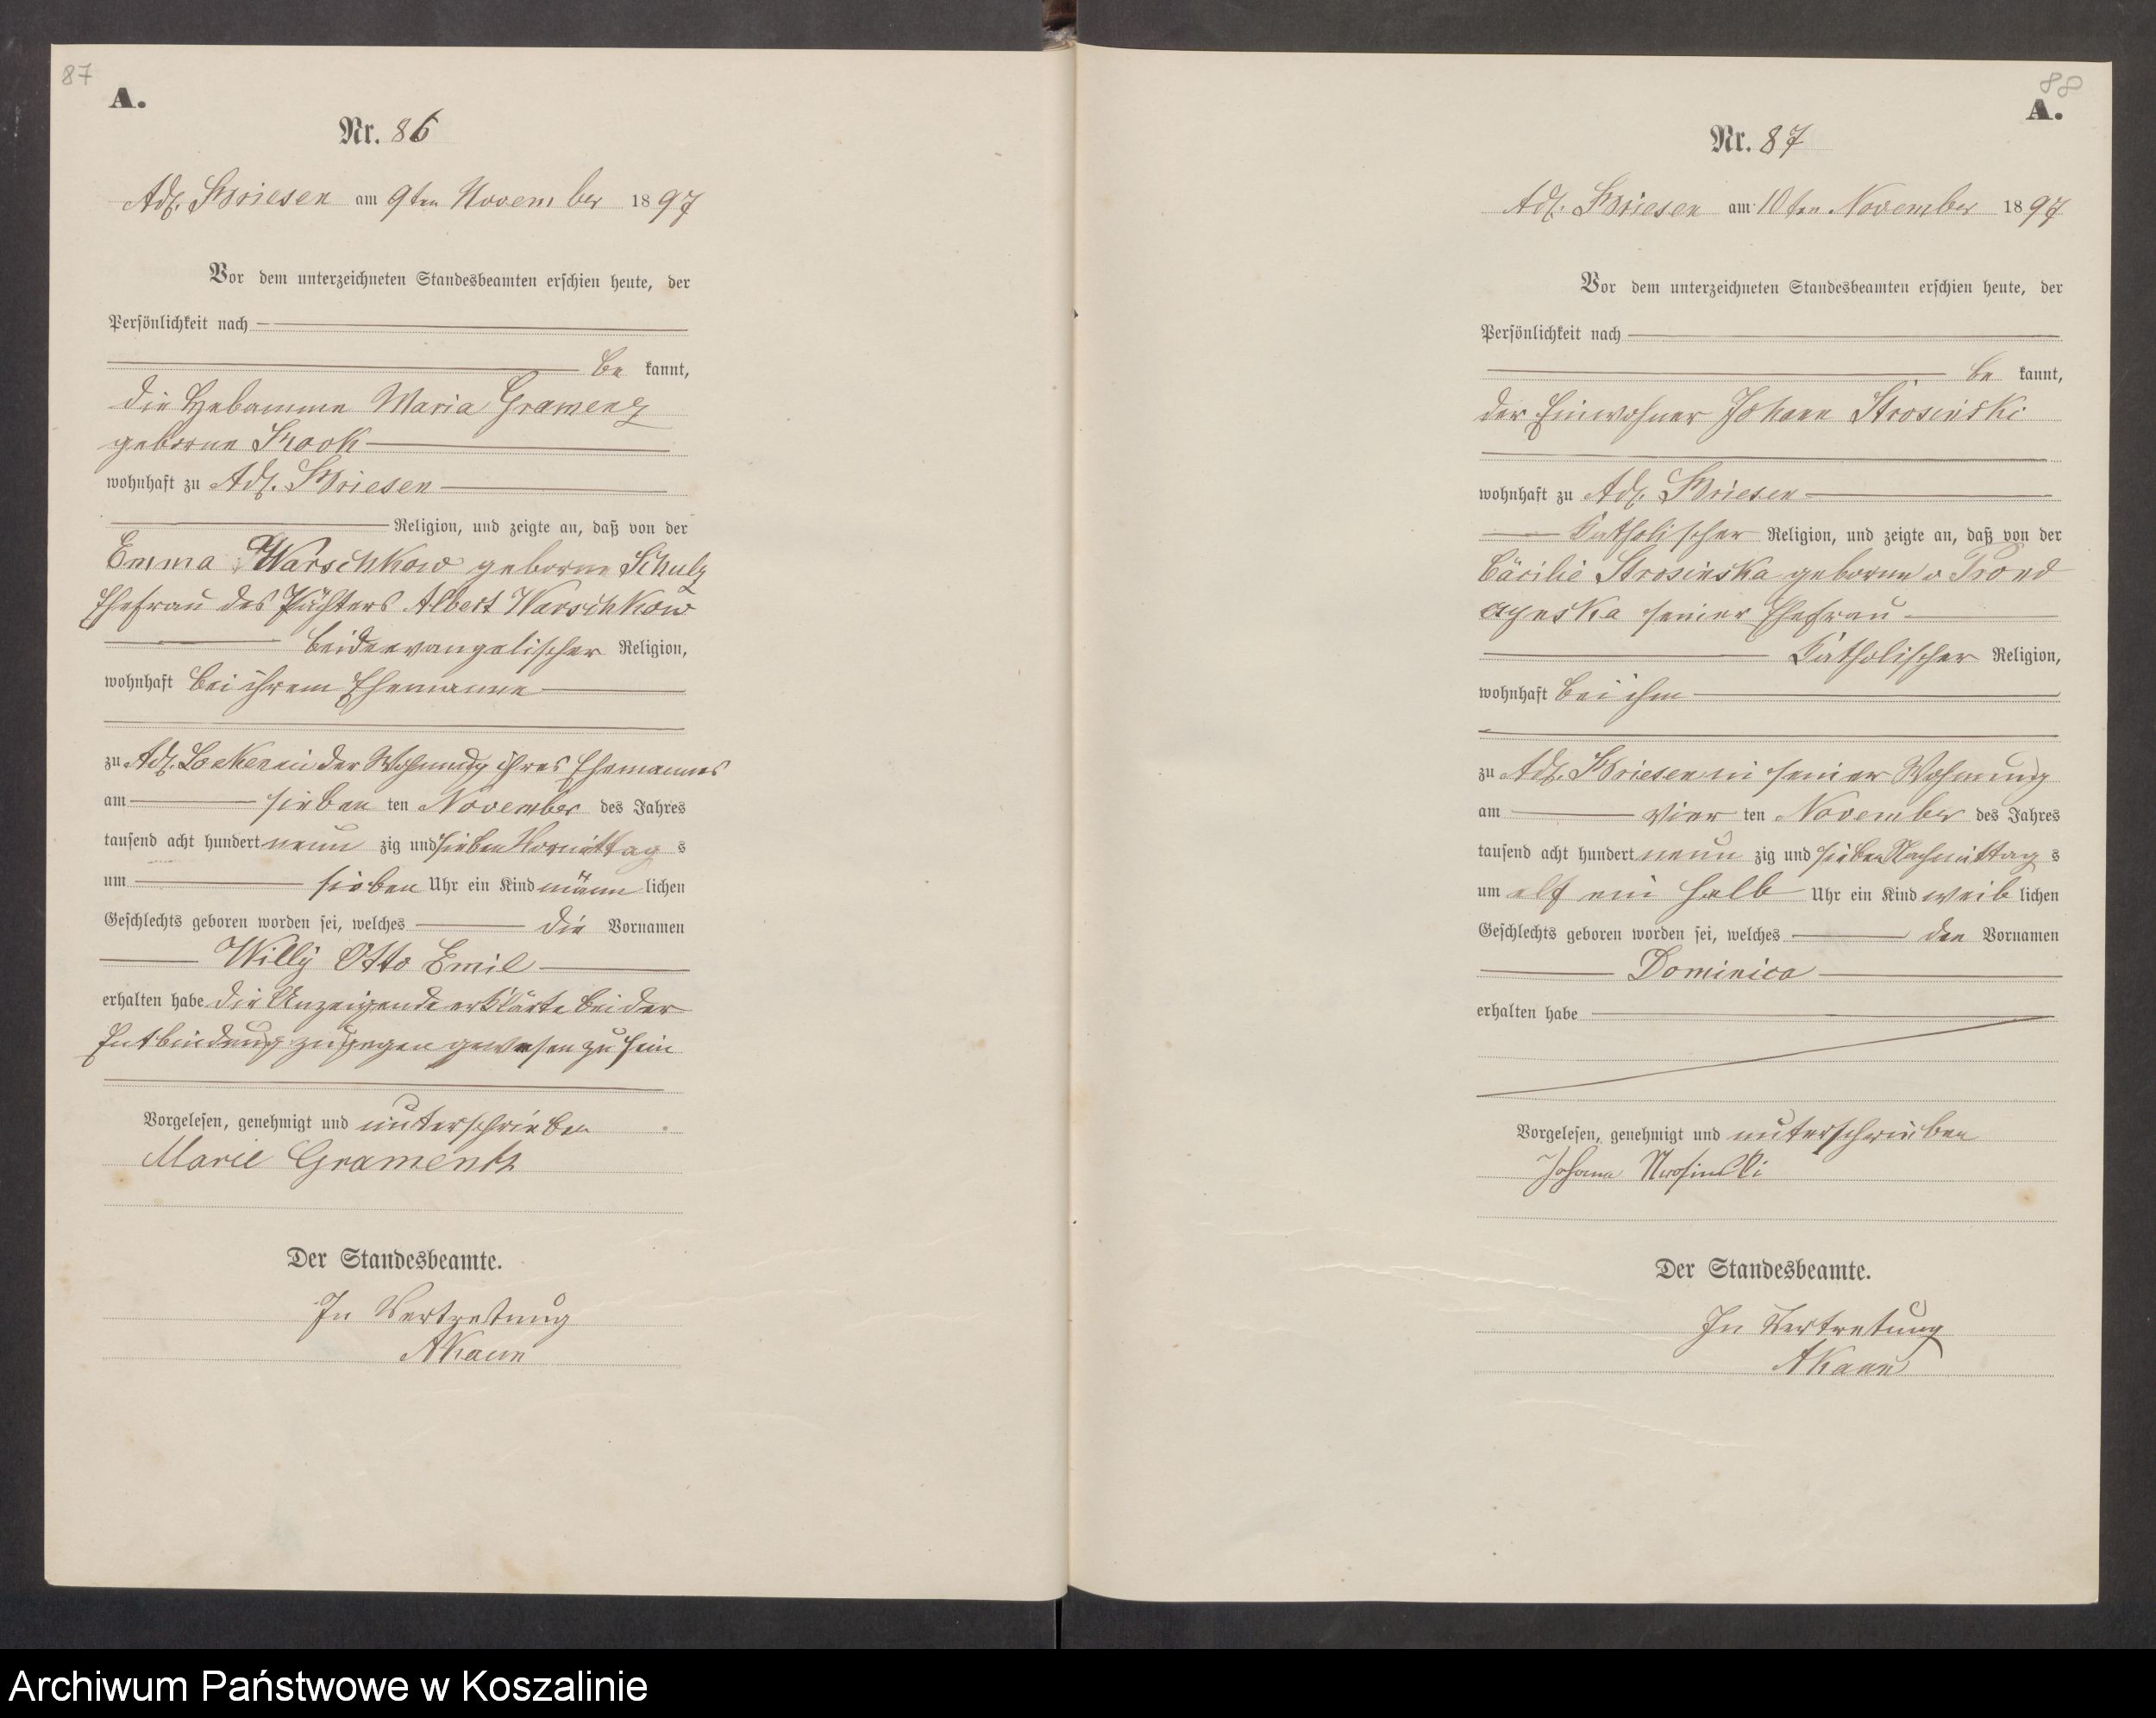 87
A.
Nr. 86
Adl. Briesen am 9ten November 1897
Vor dem unterzeichneten Standesbeamten erschien heute, der
Persönlichkeit nach
be kannt,
die Hebamme Maria Gramenz
geborne Krook
wohnhaft zu Adl. Briesen
Religion, und zeigte an, daß von der
Emma Warschkow geborne Schulz
Ehefrau des Pächters Albert Warschkow
beide evangelischer Religion,
wohnhaft bei ihrem Ehemanne
zu Adl. in der Wohnung ihres Ehemannes
am sieben ten November des Jahres
tausend acht hundert neun zig und sieben Vormittag s
um sieben Uhr ein Kind männ lichen
Geschlechts geboren worden sei, welches die Vornamen
Willy Otto Emil
erhalten habe die Anzeigende erklärte bei der
Entbindung zugegen gewesen zu sein
Vorgelesen, genehmigt und unterschrieben
Marie Gramentz
Der Standesbeamte.
In Vertretung
88
A.
Nr. 87
Adl. Briesen am 10ten November 1897
Vor dem unterzeichneten Standesbeamten erschien heute, der
Persönlichkeit nach
be kannt,
der Einwohner Johann Strosinski
wohnhaft zu Adl. Briesen
Katholischer Religion, und zeigte an, daß von der
Cäcilie Strosinska geborne v Prond
seiner Ehefrau
Katholischer Religion,
wohnhaft bei ihm
zu Adl. Briesen in seiner Wohnung
am vier ten November des Jahres
tausend acht hundert neun zig und sieben Nachmittag s
um elf ein halb Uhr ein Kind weib lichen
Geschlechts geboren worden sei, welches den Vornamen
Dominica
erhalten habe
Vorgelesen, genehmigt und unterschrieben
Johann Strosinski
Der Standesbeamte.
In Vertretung
Archiwum Państwowe w Koszalinie